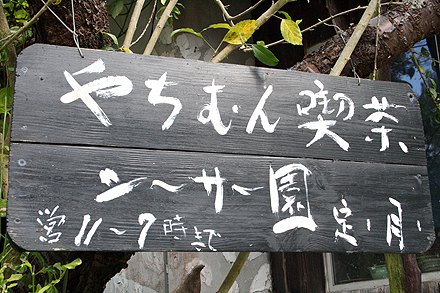 やちむん喫茶
シーサー園
営11〜7時まで 定・月